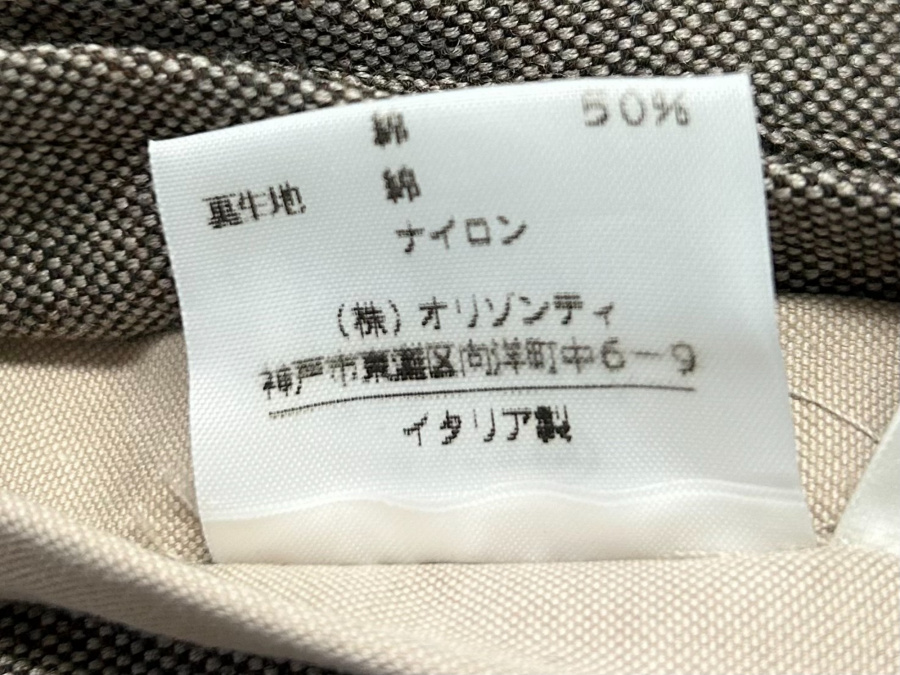 綿 50%
裏生地 綿
ナイロン
(株)オリゾンティ
神戸市東灘区向洋町中6-9
イタリア製